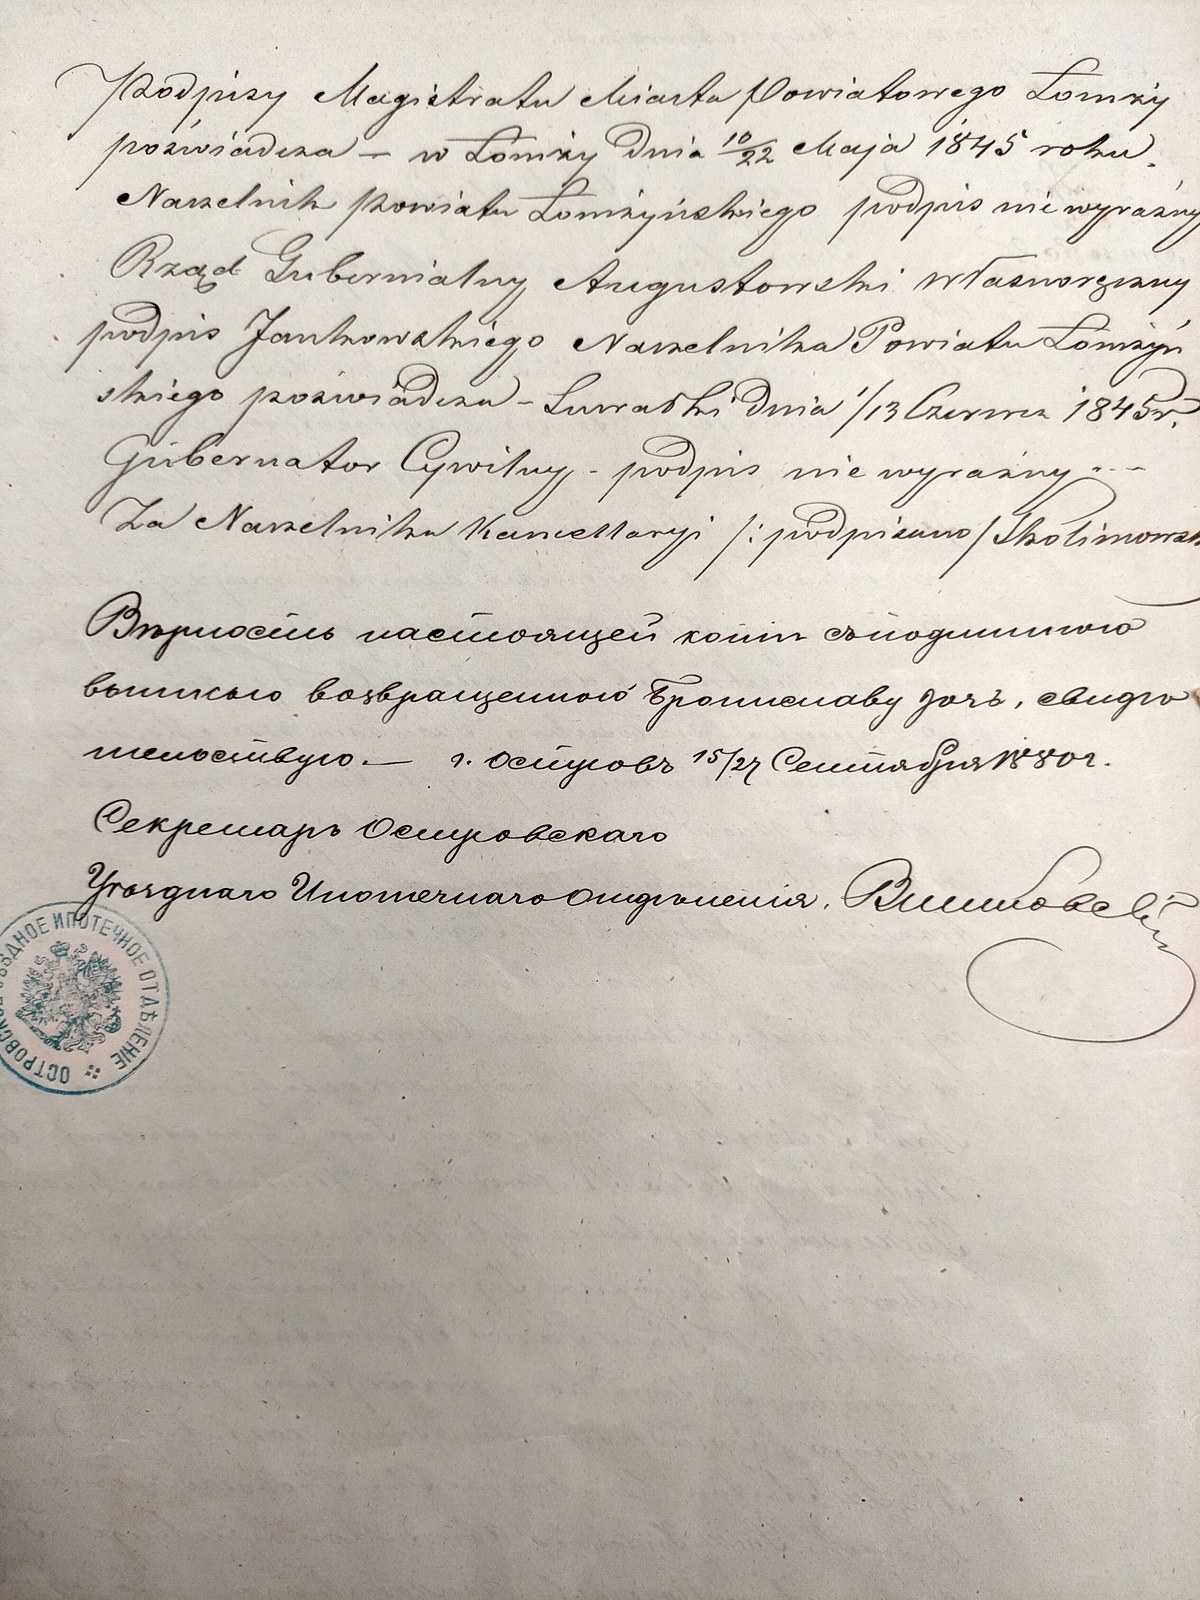 Podpisy Magistratu Miasta Powiatowego Łomży
poświadcza – w Łomży dnia 10/22 Maja 1845 roku.
Naczelnik powiatu Łomżyńskiego podpis nie wyraźny
Rząd Gubernialny Augustowski własnoręczny
podpis Jankowskiego Naczelnika Powiatu Łomżyń
skiego poświadcza – Suwałki dnia 1/13 Czerwca 1845 r.
Gubernator Cywilny – podpis nie wyraźny ---
Za Naczelnika Kancellaryi /: podpisano / Skolimowski
Вѣрность настоящей копіи съ подлинною
выписью возвращенною Брониславу, свидѣ
тельствую. — г. Островъ 15/27 Сентября 1880 г.
Секретарь Островскаго
Уѣзднаго Ипотечнаго Отдѣленія,
ОСТРОВСКОЕ УѢЗДНОЕ ИПОТЕЧНОЕ ОТДѢЛЕНІЕ